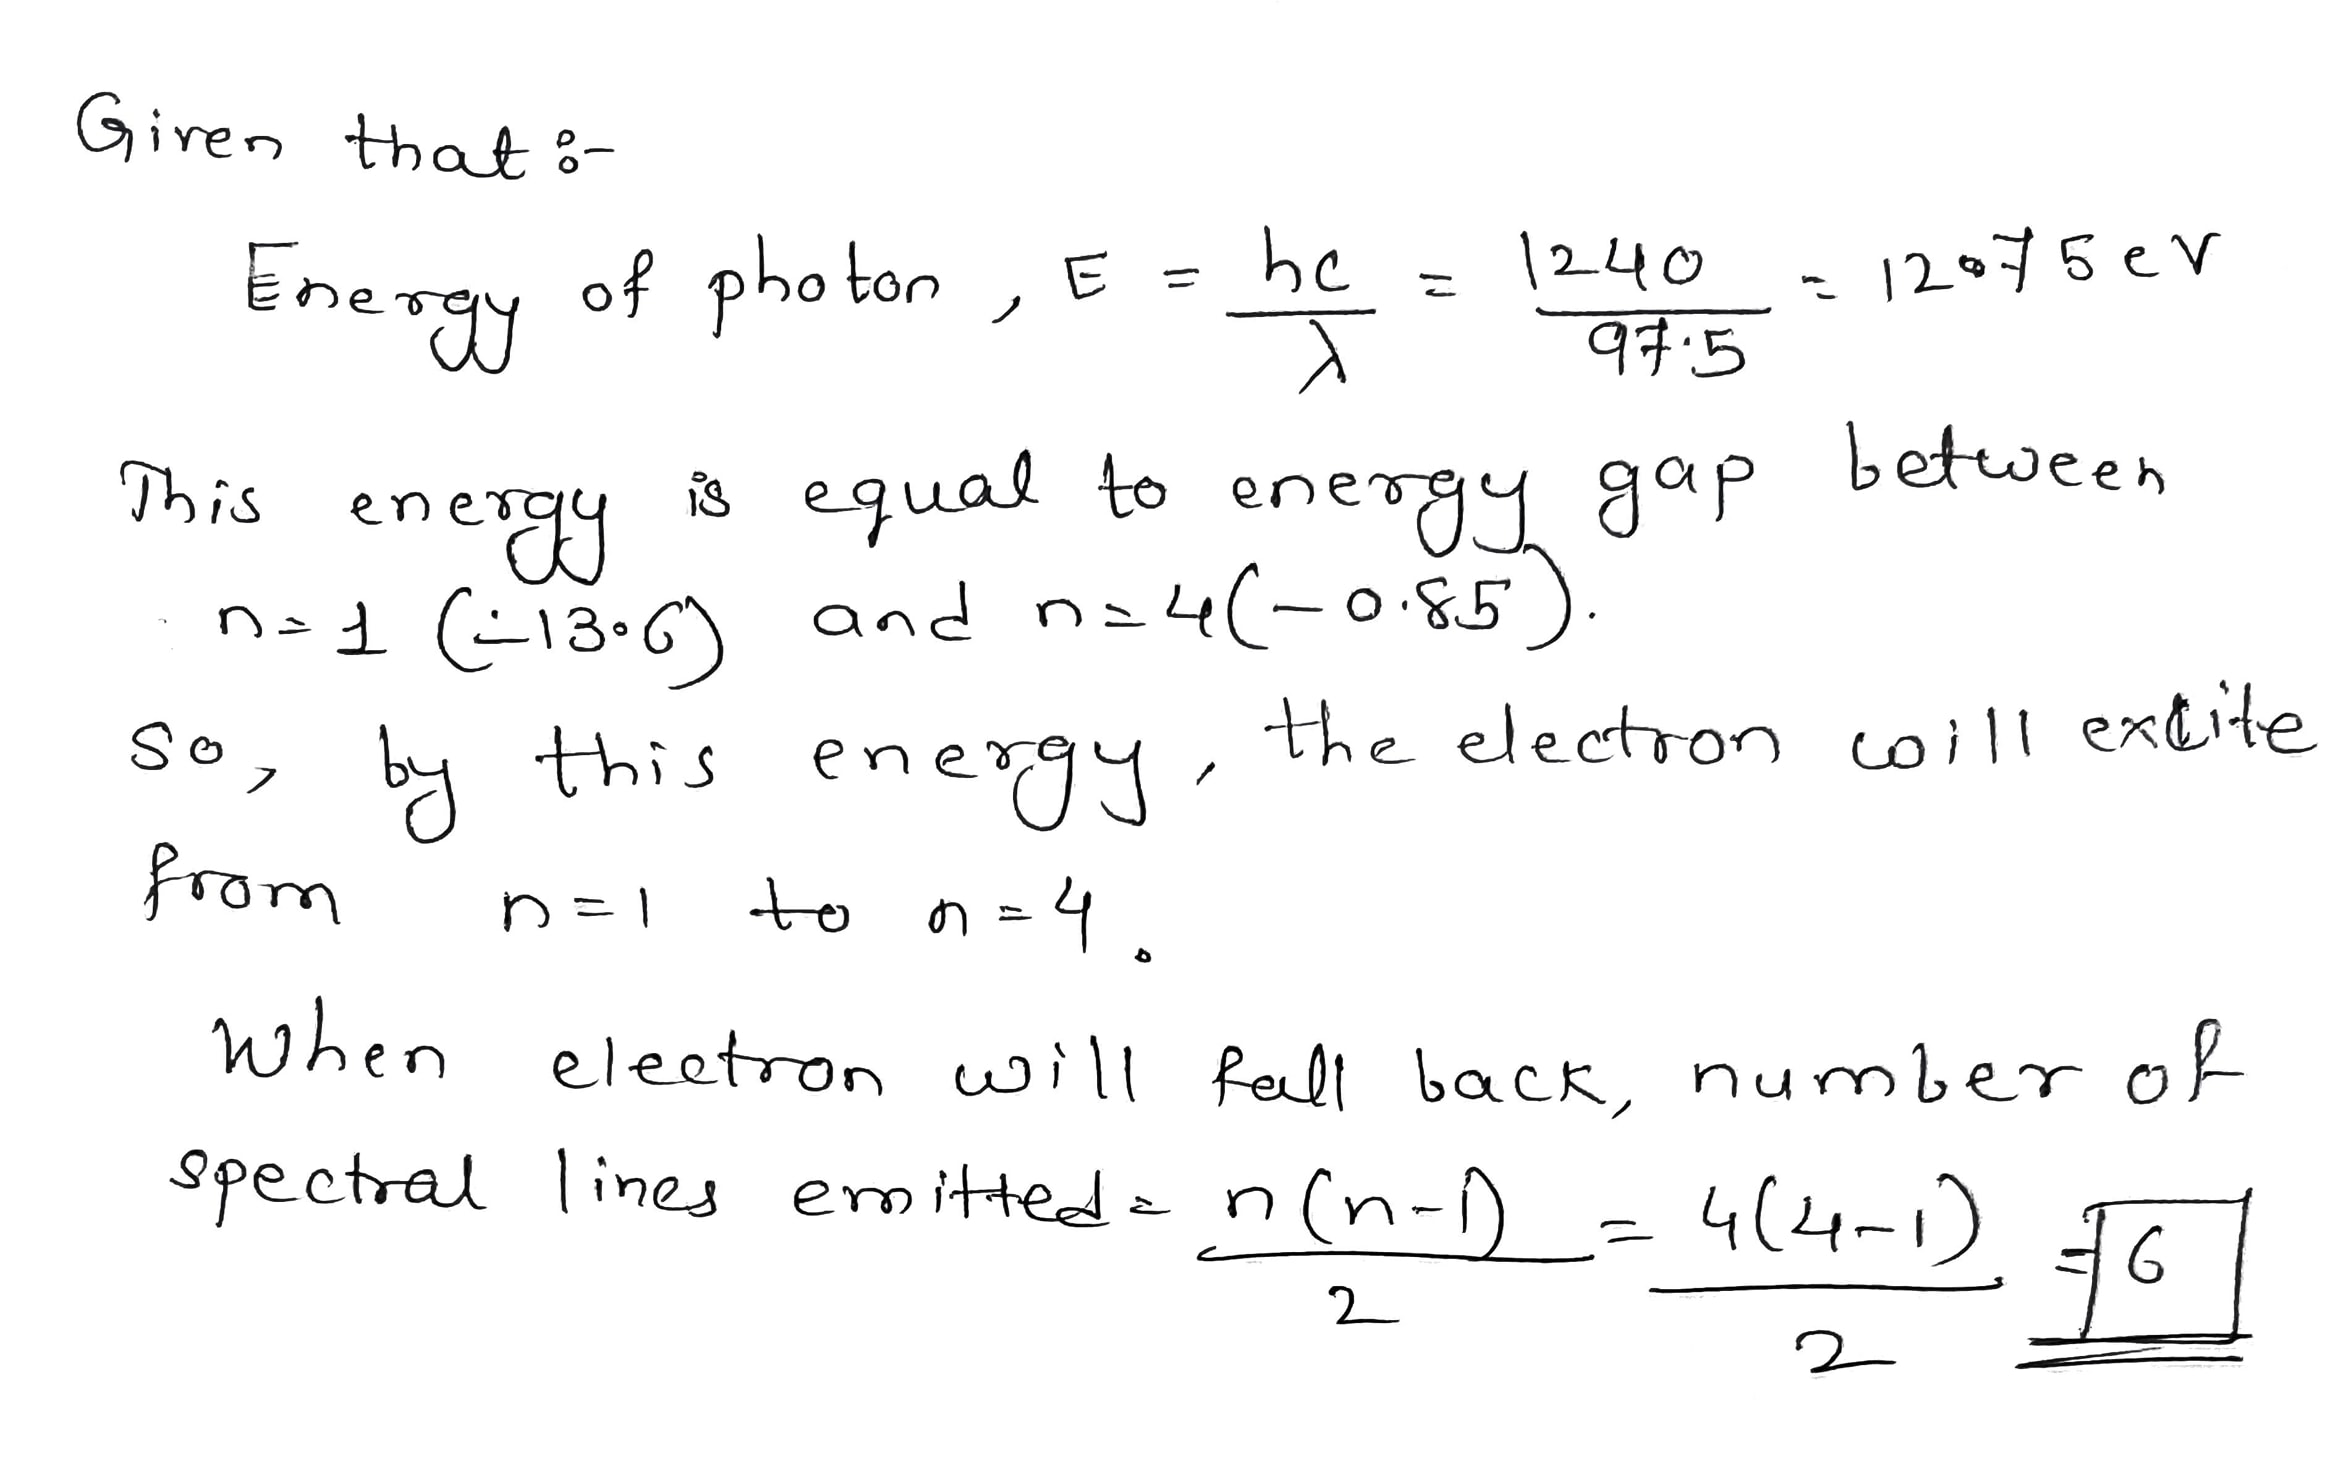 Given that :-
Energy of photon, E = hc/λ = 1240/97.5 = 12.75 eV
This energy is equal to energy gap between
n=1 (-13.6) and n=4(-0.85).
So, by this energy, the electron will excite
from n=1 to n=4.
When electron will fall back, number of
spectral lines emitted = n(n-1)/2 = 4(4-1)/2 = 6